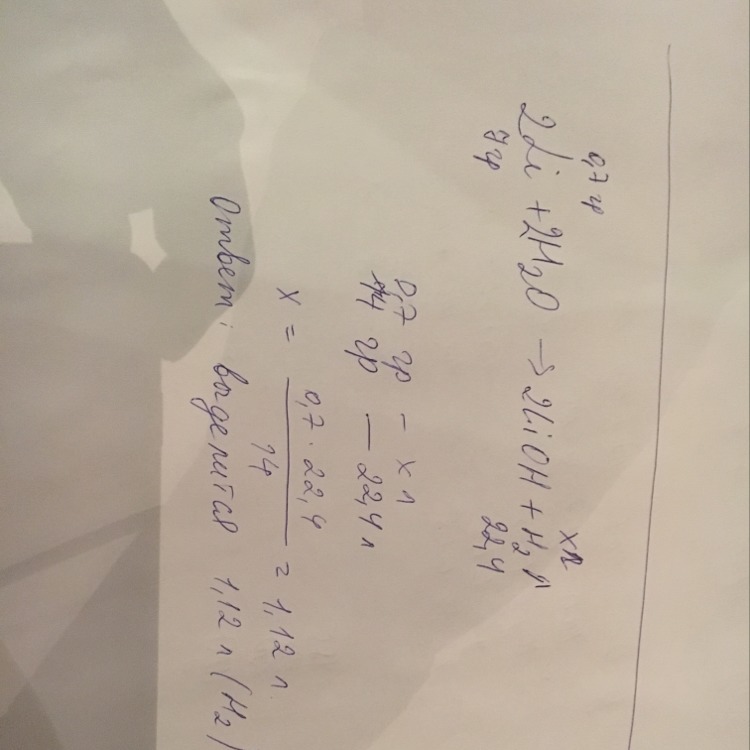 0,7 гр xл
2Li + 2H2O → 2LiOH + H2↑
7 гр 22,4
0,7 гр – x л
14 гр – 22,4 л
x = 0,7 · 22,4 / 14 = 1,12 л.
Ответ: выделится 1,12 л (H2)